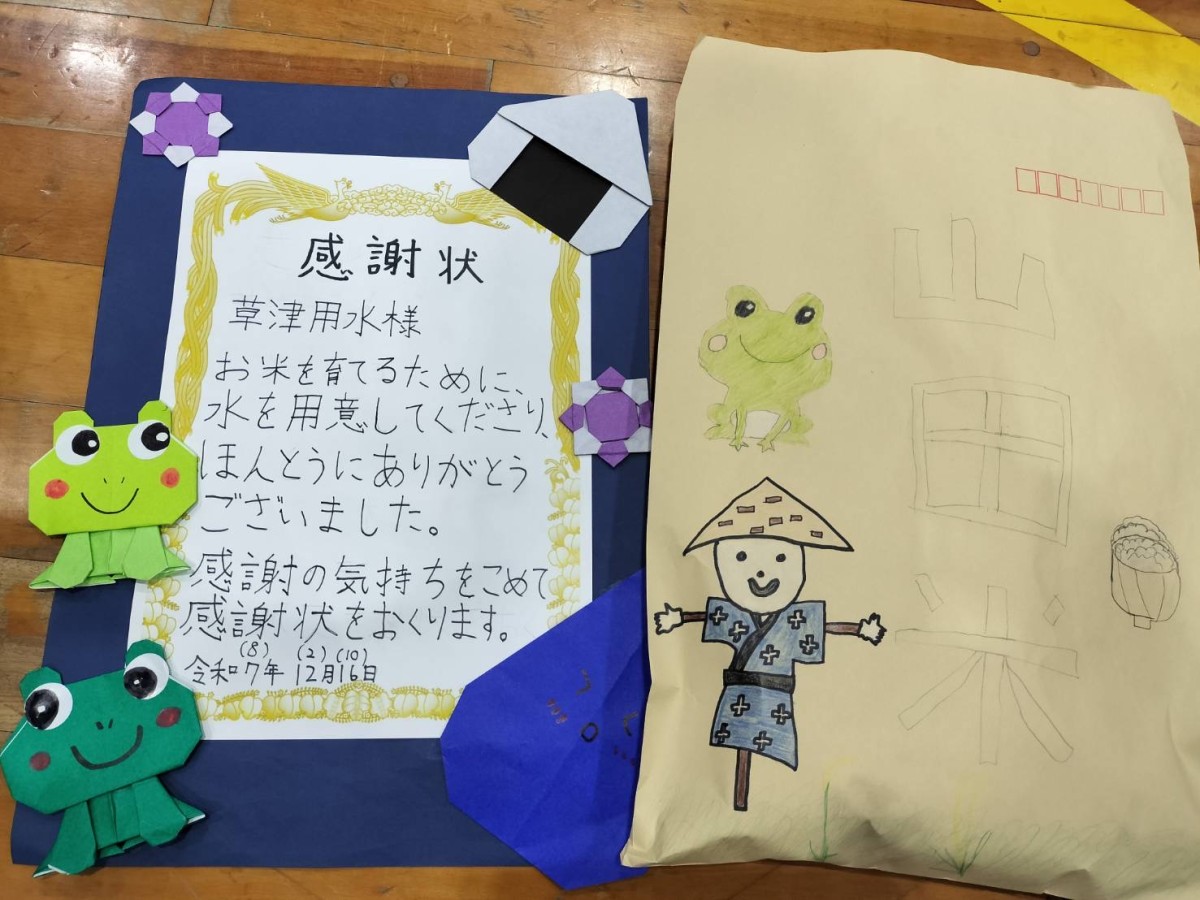 感謝状
草津用水様
お米を育てるために、
水を用意してくださり、
ほんとうにありがとう
ございました。
感謝の気持ちをこめて
感謝状をおくります。
(8) (2) (10)
令和7年 12月16日
山
田
米